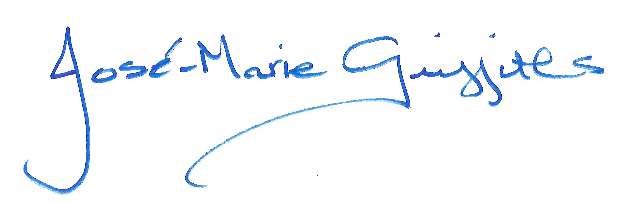 José-Marie Griffiths